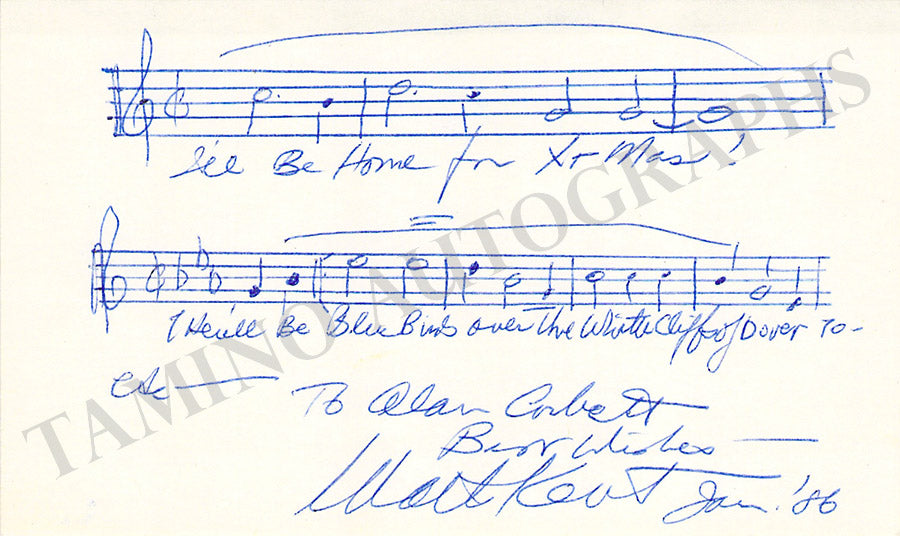 I'll Be Home for Xt Mas'
There'll Be Blue Birds over The White Cliffs of Dover To-
etc
To Alan Corbett
Best Wishes
Walt Kent Jan. '86
TAMINO AUTOGRAPHS